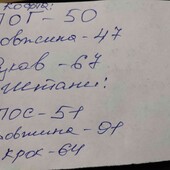 кофта:
ПОГ - 50
овжина - 47
укав - 67
штани:
ПОС - 51
овжина - 91
крос - 64